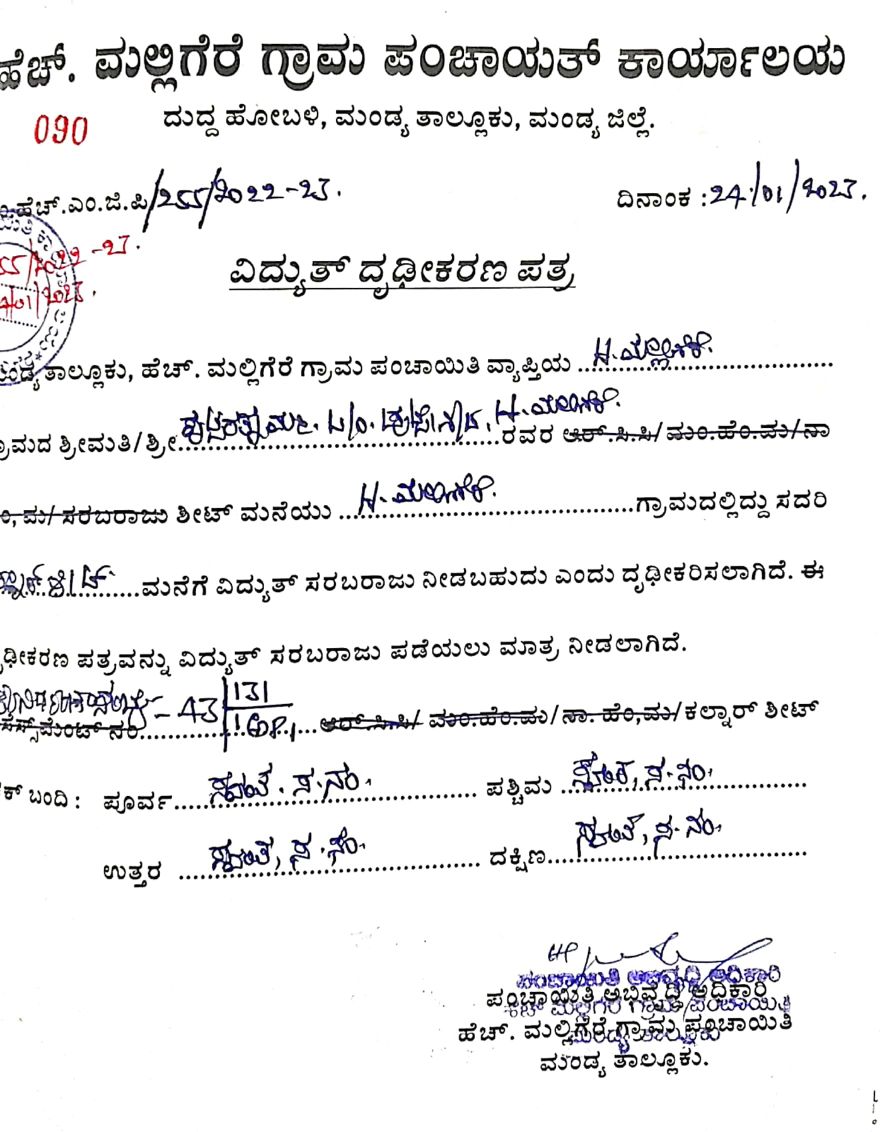 ಹೆಚ್. ಮಲ್ಲಿಗೆರೆ ಗ್ರಾಮ ಪಂಚಾಯತ್ ಕಾರ್ಯಾಲಯ
090 ದುದ್ದ ಹೋಬಳಿ, ಮಂಡ್ಯ ತಾಲ್ಲೂಕು, ಮಂಡ್ಯ ಜಿಲ್ಲೆ.
ಹೆಚ್.ಎಂ.ಜಿ.ಪಿ/255/2022-23. ದಿನಾಂಕ :24/01/2023.
55/2022-23.
/01/2023.
ವಿದ್ಯುತ್ ದೃಢೀಕರಣ ಪತ್ರ
ಮಂಡ್ಯ ತಾಲ್ಲೂಕು, ಹೆಚ್. ಮಲ್ಲಿಗೆರೆ ಗ್ರಾಮ ಪಂಚಾಯಿತಿ ವ್ಯಾಪ್ತಿಯ H.ಮಲ್ಲಿಗೆರೆ.
ಗ್ರಾಮದ ಶ್ರೀಮತಿ/ಶ್ರೀ H. ಮಲ್ಲಿಗೆರೆ. ರವರ ಆರ್.ಸಿ.ಸಿ/ ಮಂ.ಹೆಂ.ಮ/ನಾ
ಹೆಂ,ಮ/ ಸರಬರಾಜು ಶೀಟ್ ಮನೆಯು H. ಮಲ್ಲಿಗೆರೆ. ಗ್ರಾಮದಲ್ಲಿದ್ದು ಸದರಿ
ಮನೆಗೆ ವಿದ್ಯುತ್ ಸರಬರಾಜು ನೀಡಬಹುದು ಎಂದು ದೃಢೀಕರಿಸಲಾಗಿದೆ. ಈ
ದೃಢೀಕರಣ ಪತ್ರವನ್ನು ವಿದ್ಯುತ್ ಸರಬರಾಜು ಪಡೆಯಲು ಮಾತ್ರ ನೀಡಲಾಗಿದೆ.
- 43 131
ಅಸೆಸ್ಸ್‌ಮೆಂಟ್ ನಂ. ಆರ್.ಸಿ.ಸಿ/ ಮಂ.ಹೆಂ.ಮ/ನಾ. ಹೆಂ,ಮ/ಕಲ್ನಾರ್ ಶೀಟ್
ಚಕ್ ಬಂದಿ : ಪೂರ್ವ ಸ್ವಂತ. ಸ.ನಂ. ಪಶ್ಚಿಮ ಸ.ನಂ.
ಉತ್ತರ ಸ್ವಂತ, ಸ.ನಂ. ದಕ್ಷಿಣ ಸ್ವಂತ, ಸ.ನಂ.
ಪಂಚಾಯಿತಿ ಅಭಿವೃದ್ಧಿ ಅಧಿಕಾರಿ
ಹೆಚ್ ಮಲ್ಲಿಗೆರೆ ಗ್ರಾಮ ಪಂಚಾಯಿತಿ
ಮಂಡ್ಯ ತಾಲ್ಲೂಕು
ಪಂಚಾಯಿತಿ ಅಭಿವೃದ್ಧಿ ಅಧಿಕಾರಿ
ಹೆಚ್. ಮಲ್ಲಿಗೆರೆ ಗ್ರಾಮ ಪಂಚಾಯಿತಿ
ಮಂಡ್ಯ ತಾಲ್ಲೂಕು.